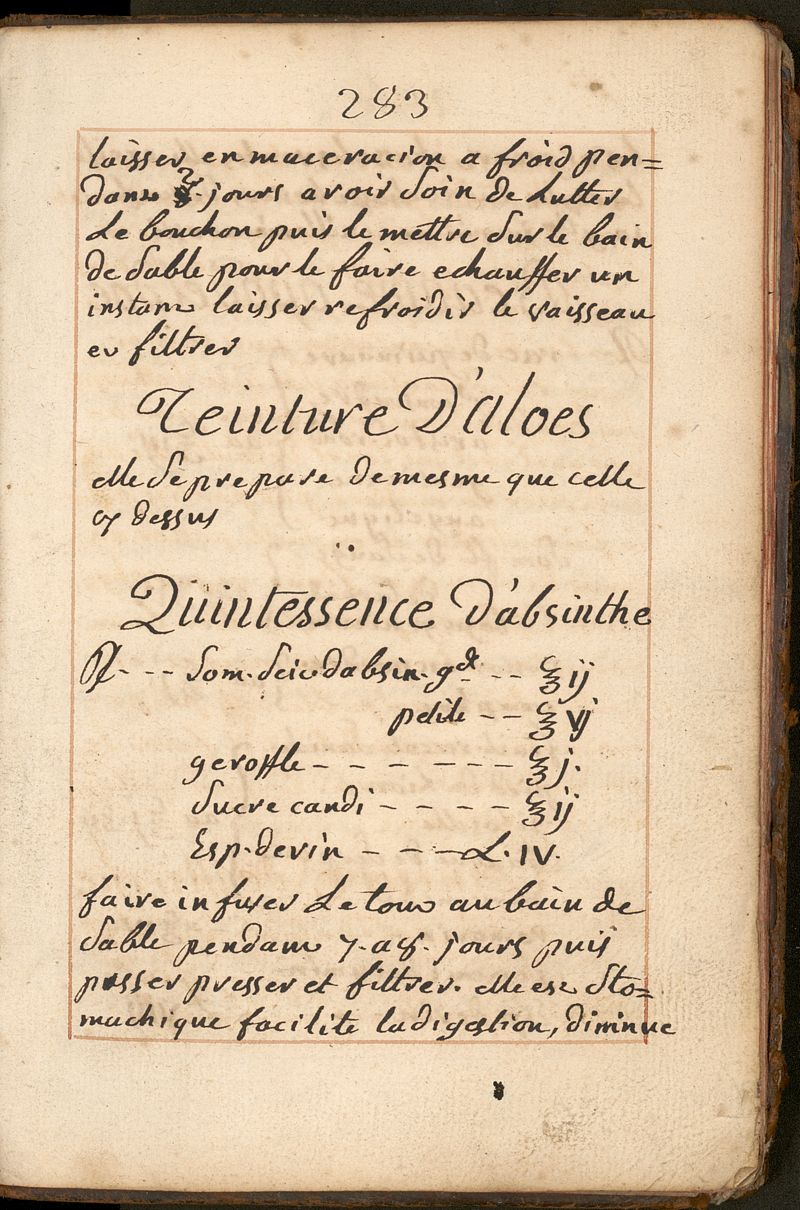 283
laisser en maceracion a froid pen=
dant jours avoir Soin de Lutter
Le bouchon puis le mettre Sur le bain
de Sable pour le faire echauffer un
instant laisser refroidir le vaisseau
et filtrer
Teinture D'aloes
elle Se prepare de mesme que celle
cy dessus
Quintessence D'absinthe
℞ - - - Som. Seic. dabsin. gde - - ℥ ij
petite - - ℥ vj
geroffle - - - - - - - ℥ j.
Sucre candi - - - - ℥ ij
Esp. de vin - - - L. IV.
faire infuser Le tout au bain de
Sable pendant 7. a 8. jours puis
passer presser et filtrer. elle est Sto=
machique facilite la digestion, diminue